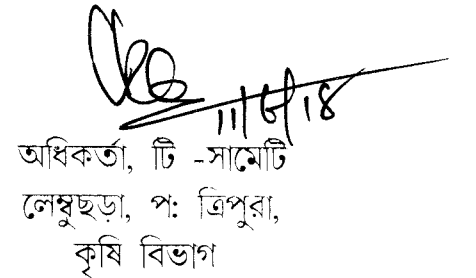 11/6/18
অধিকর্তা, টি -সামেটি
লেম্বুছড়া, প: ত্রিপুরা,
কৃষি বিভাগ